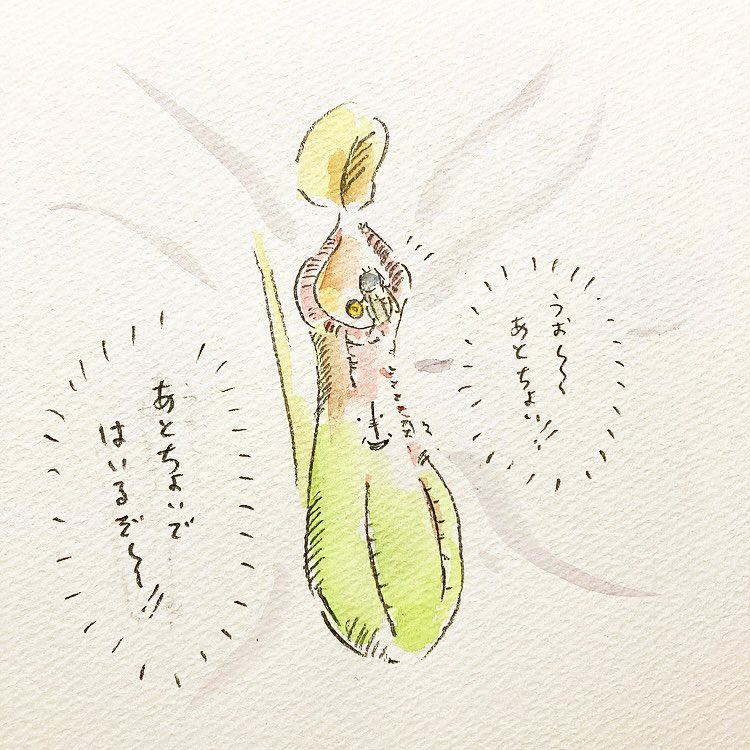 うお〜〜
あとちょい!!
あとちょいで
はいるぞ〜!!